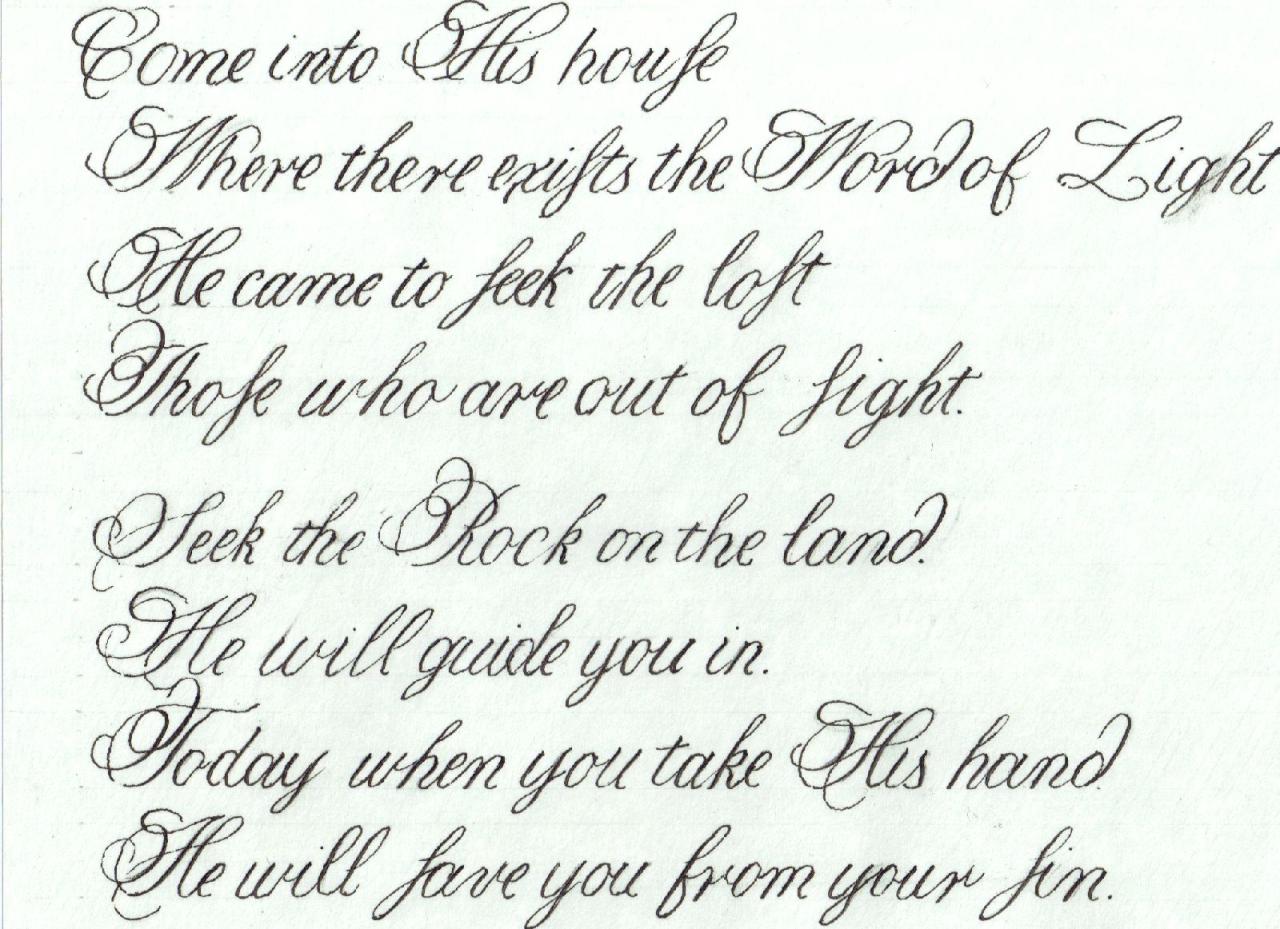 Come into His houſe
Where there exiſts the Word of Light
He came to ſeek the loſt
Thoſe who are out of ſight.
Seek the Rock on the land.
He will guide you in.
Today when you take His hand.
He will ſave you from your ſin.